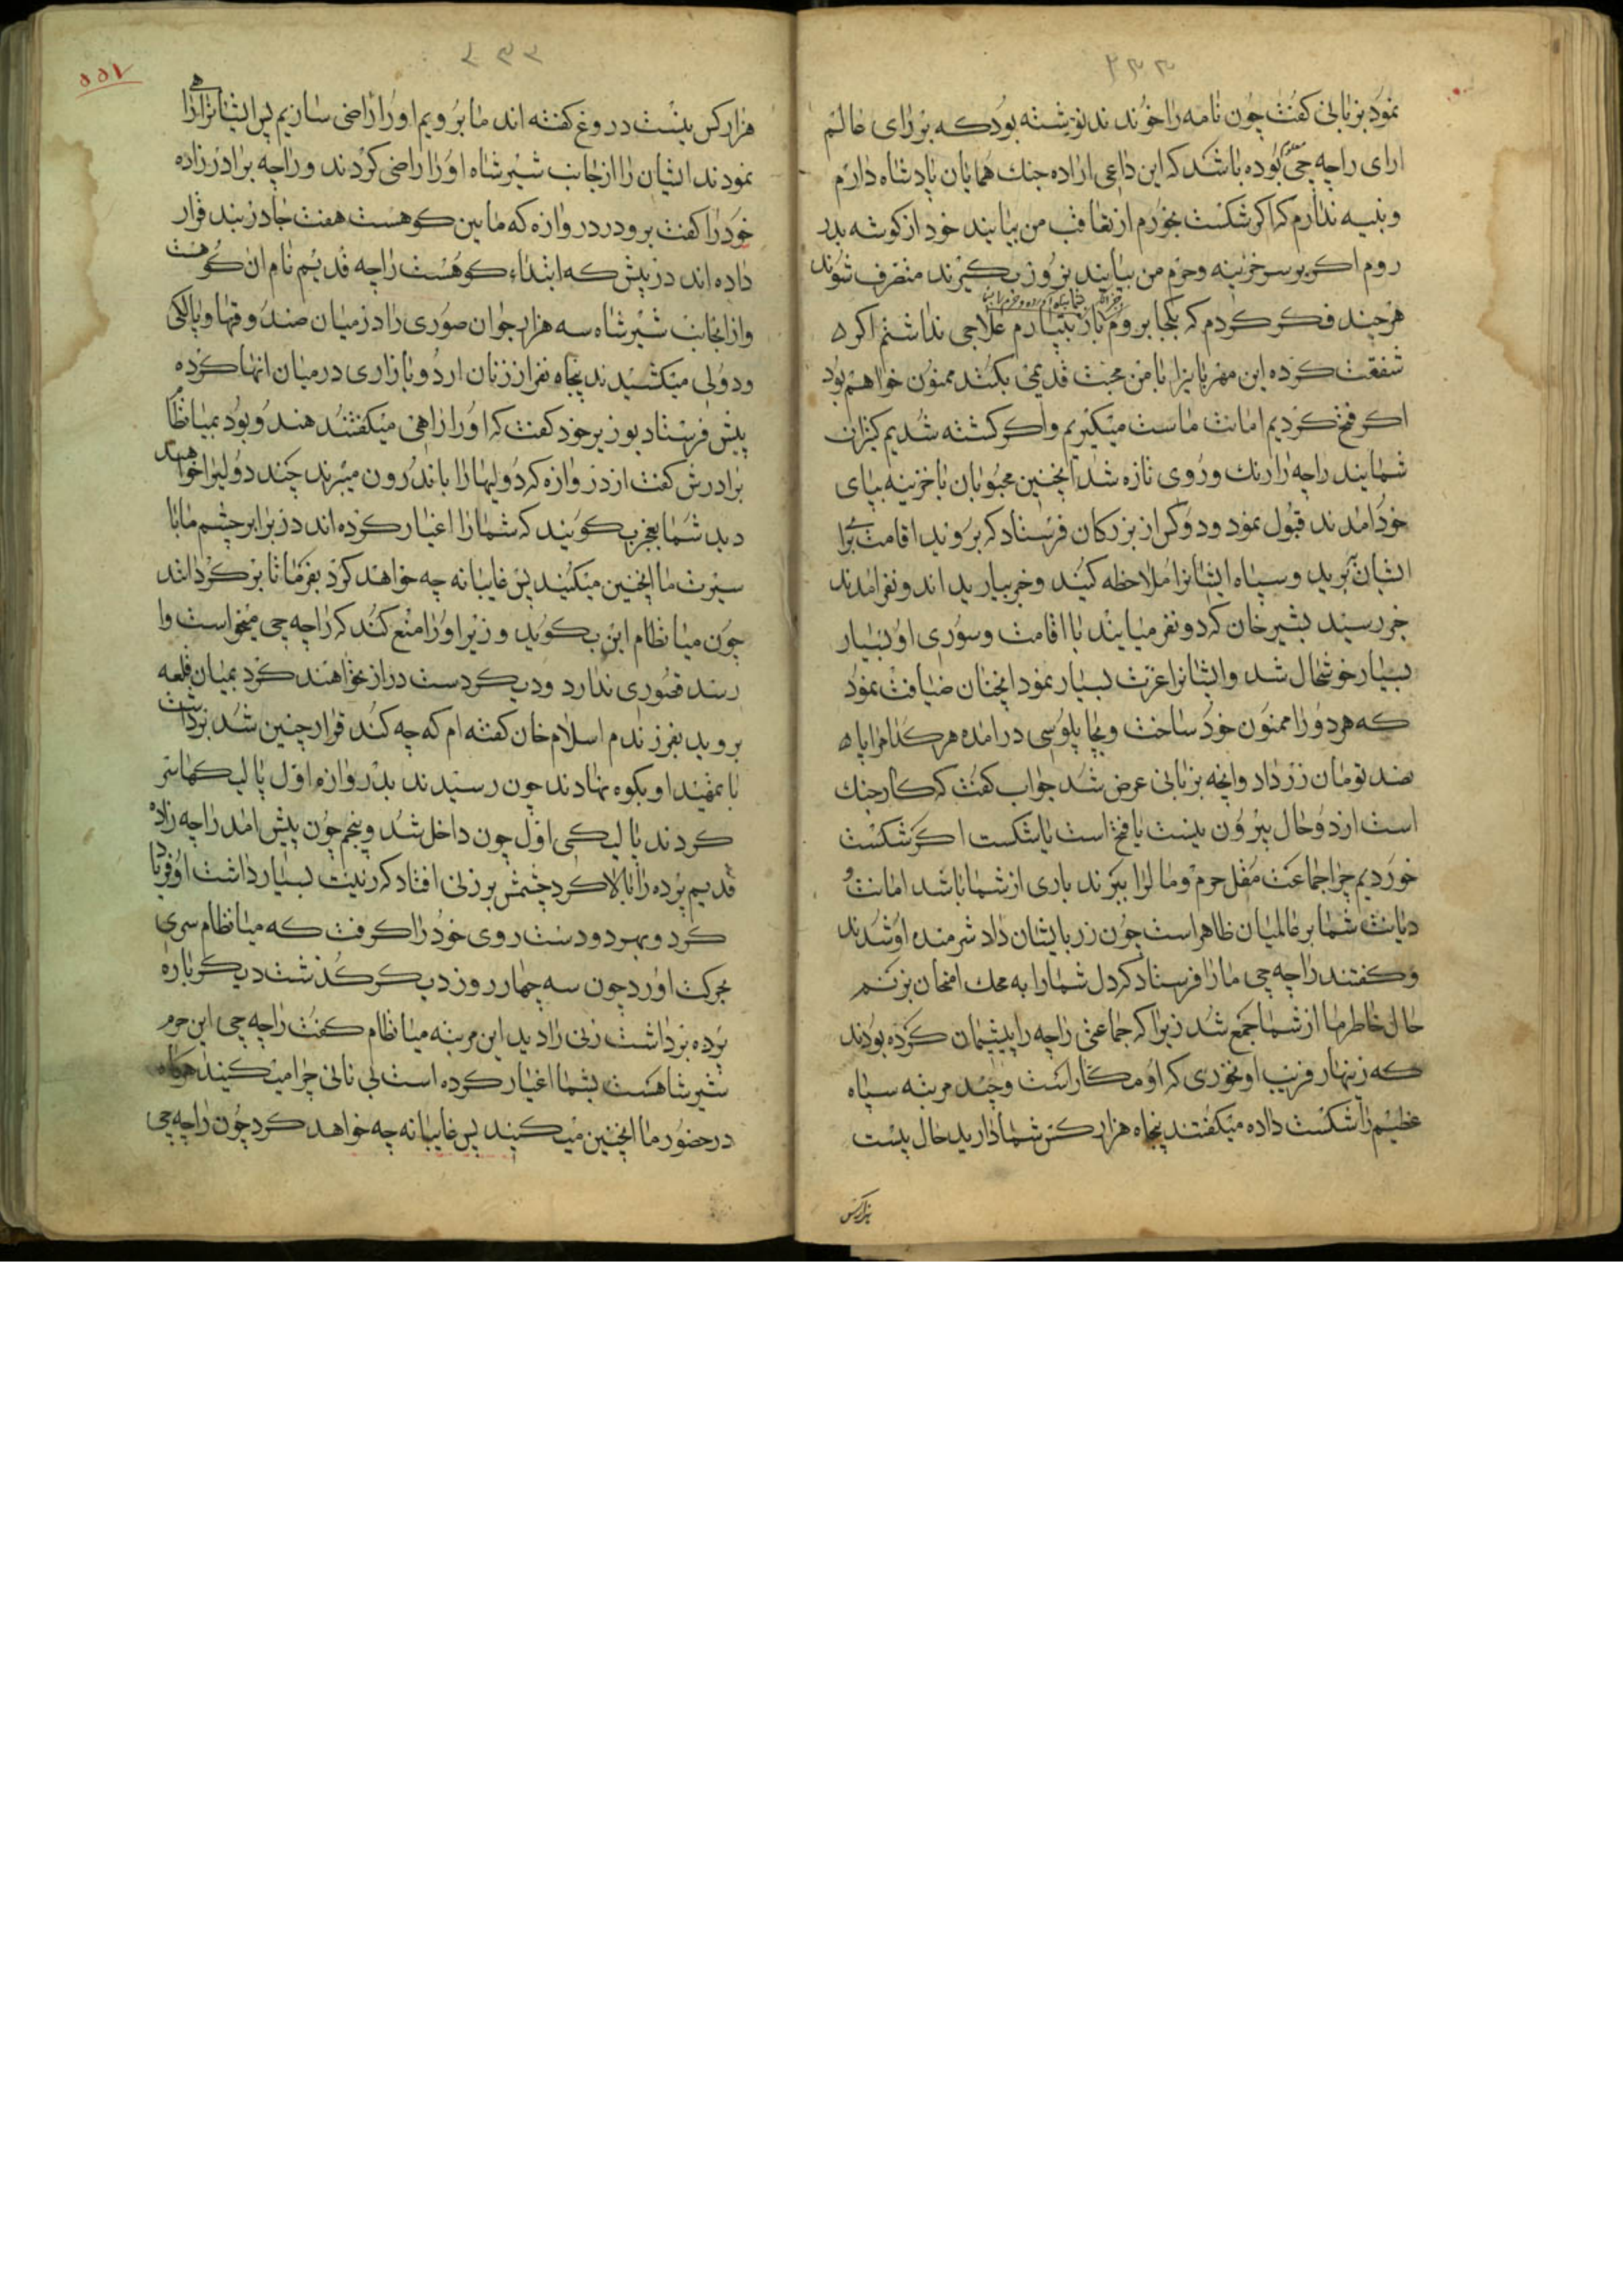 ۳۳۳
نمود بزبانی کفت چون نامه را خوندند نوشته بود که بر رای عالم
ارای راجه چی معلوم بوده باشد که این داعی اراده جنک همایان پادشاه دارم
و بنیه ندارم که اکر شکست بخورم از تعاقب من بیایند خود از کوشه بدر
روم اکر بر سر خزینه و حرم من بیایند بزور بکیرند متصرف شوند
هرچند فکر کردم که بکجا بروم باز بسپارم علاجی نداشتم اکر
شفقت کرده این مهربانیرا با من محبت قدیمی بکنند ممنون خواهم بود
اکر فتح کردیم امانت ماست میکیریم و اکر کشته شدیم کیزان
شمایند راجه را رنک و روی تازه شد اینچنین محبوبان با خزینه بپای
خود امدند قبول نمود و دو کس از بزرکان فرستاد که بروید اقامت برای
ایشان برید و سپاه ایشانرا ملاحظه کنید و خبر بیارید اند و نفر امدند
خبر رسید بشیر خان که دو نفر میایند با اقامت و سوری او بسیار
بسیار خوشحال شد و ایشانرا عزت بسیار نمود اینچنان ضیافت نمود
که هر دو را ممنون خود ساخت و بچاپلوسی در امده هر کدام را پا
صد تومان زر داد وانچه بزبانی عرض شد جواب کفت که کار جنک
است از دو حال بیرون نیست یا فتح است یا شکست اکر شکست
خوردیم چرا جماعت مغل حرم و مال را ببرند باری از شما باشد امانت و
دیانت شما بر عالمیان ظاهر است چون زر بایشان داد شرمنده او شدند
و کفتند راجه چی ما را فرستاد که دل شما را به محک امتحان بزنیم
حال خاطر ما از شما جمع شد زیرا که جماعتی راجه را پشیمان کرده بودند
که زینهار فریب او نخوری که او مکار است و چند مرتبه سپاه
عظیم را شکست داده میکفتند پنجاه هزار کس شما دارید حال بیست
هزار کس
۵۵۷
هزار کس نیست دروغ کفته اند ما برویم او را راضی سازیم پس ایشانرا راهی
نمودند ایشان را از جانب شیر شاه او را راضی کردند و راجه برادر زاده
خود را کفت برو در دروازه که مابین کوهست هفت جا دربند قرار
داده اند در پیش که ابتداء کوهست راجه قدیم نام ان کوهست
و از انجانب شیر شاه سه هزار جوان صوری را در میان صندوقها و پالکی
و دولی میکشیدند پنجاه نفر از زنان اردو بازاری درمیان انها کرده
پیش فرستاد بوزیر خود کفت که او را راهنی میکفتند هندو بود بمیا نظام
برادرش کفت از دروازه که دولیها را باندرون میبرند چند دولیرا خواهند
دید شما بعجز بکویید که شما را اغیار کرده اند در برابر چشم ما با
سیرت ما اینچنین میکنید پس غایبانه چه خواهد کرد بفرما تا برکردانند
چون میا نظام این بکوید وزیر او را منع کند که راجه چی میخواست وا
رسد قصوری ندارد و دیکر دست دراز نخواهند کرد بمیان قلعه
بروید بفرزندم اسلام خان کفته ام که چه کند قرار چنین شد برداشت
با تمهید او بکوه نهادند چون رسیدند بدروازه اول پالیکها سر
کردند پالیکی اول چون داخل شد و پنجم چون پیش امد راجه زاده
قدیم پرده را بالا کرد چشمش بر زنی افتاد که زینت بسیار داشت او فریاد
کرد و بهر دو دست روی خود را کرفت که میا نظام سری
بحرکت اورد چون سه چهار روز دیکر کذشت دیکرباره
پرده برداشت زنی را دید این مرتبه میا نظام کفت راجه چی این حرم
شیر شاهست بشما اغیار کرده است بی ناتی چرا میکنید هرکاه
در حضور ما اینچنین میکنید پس غایبانه چه خواهد کرد چون راجه چی